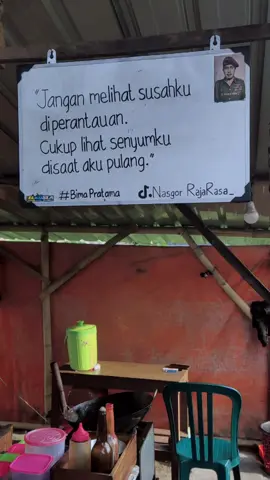 "Jangan melihat susahku
diperantauan.
Cukup lihat senyumku
disaat aku pulang."
#BimaPratama
Nasgor RajaRasa_